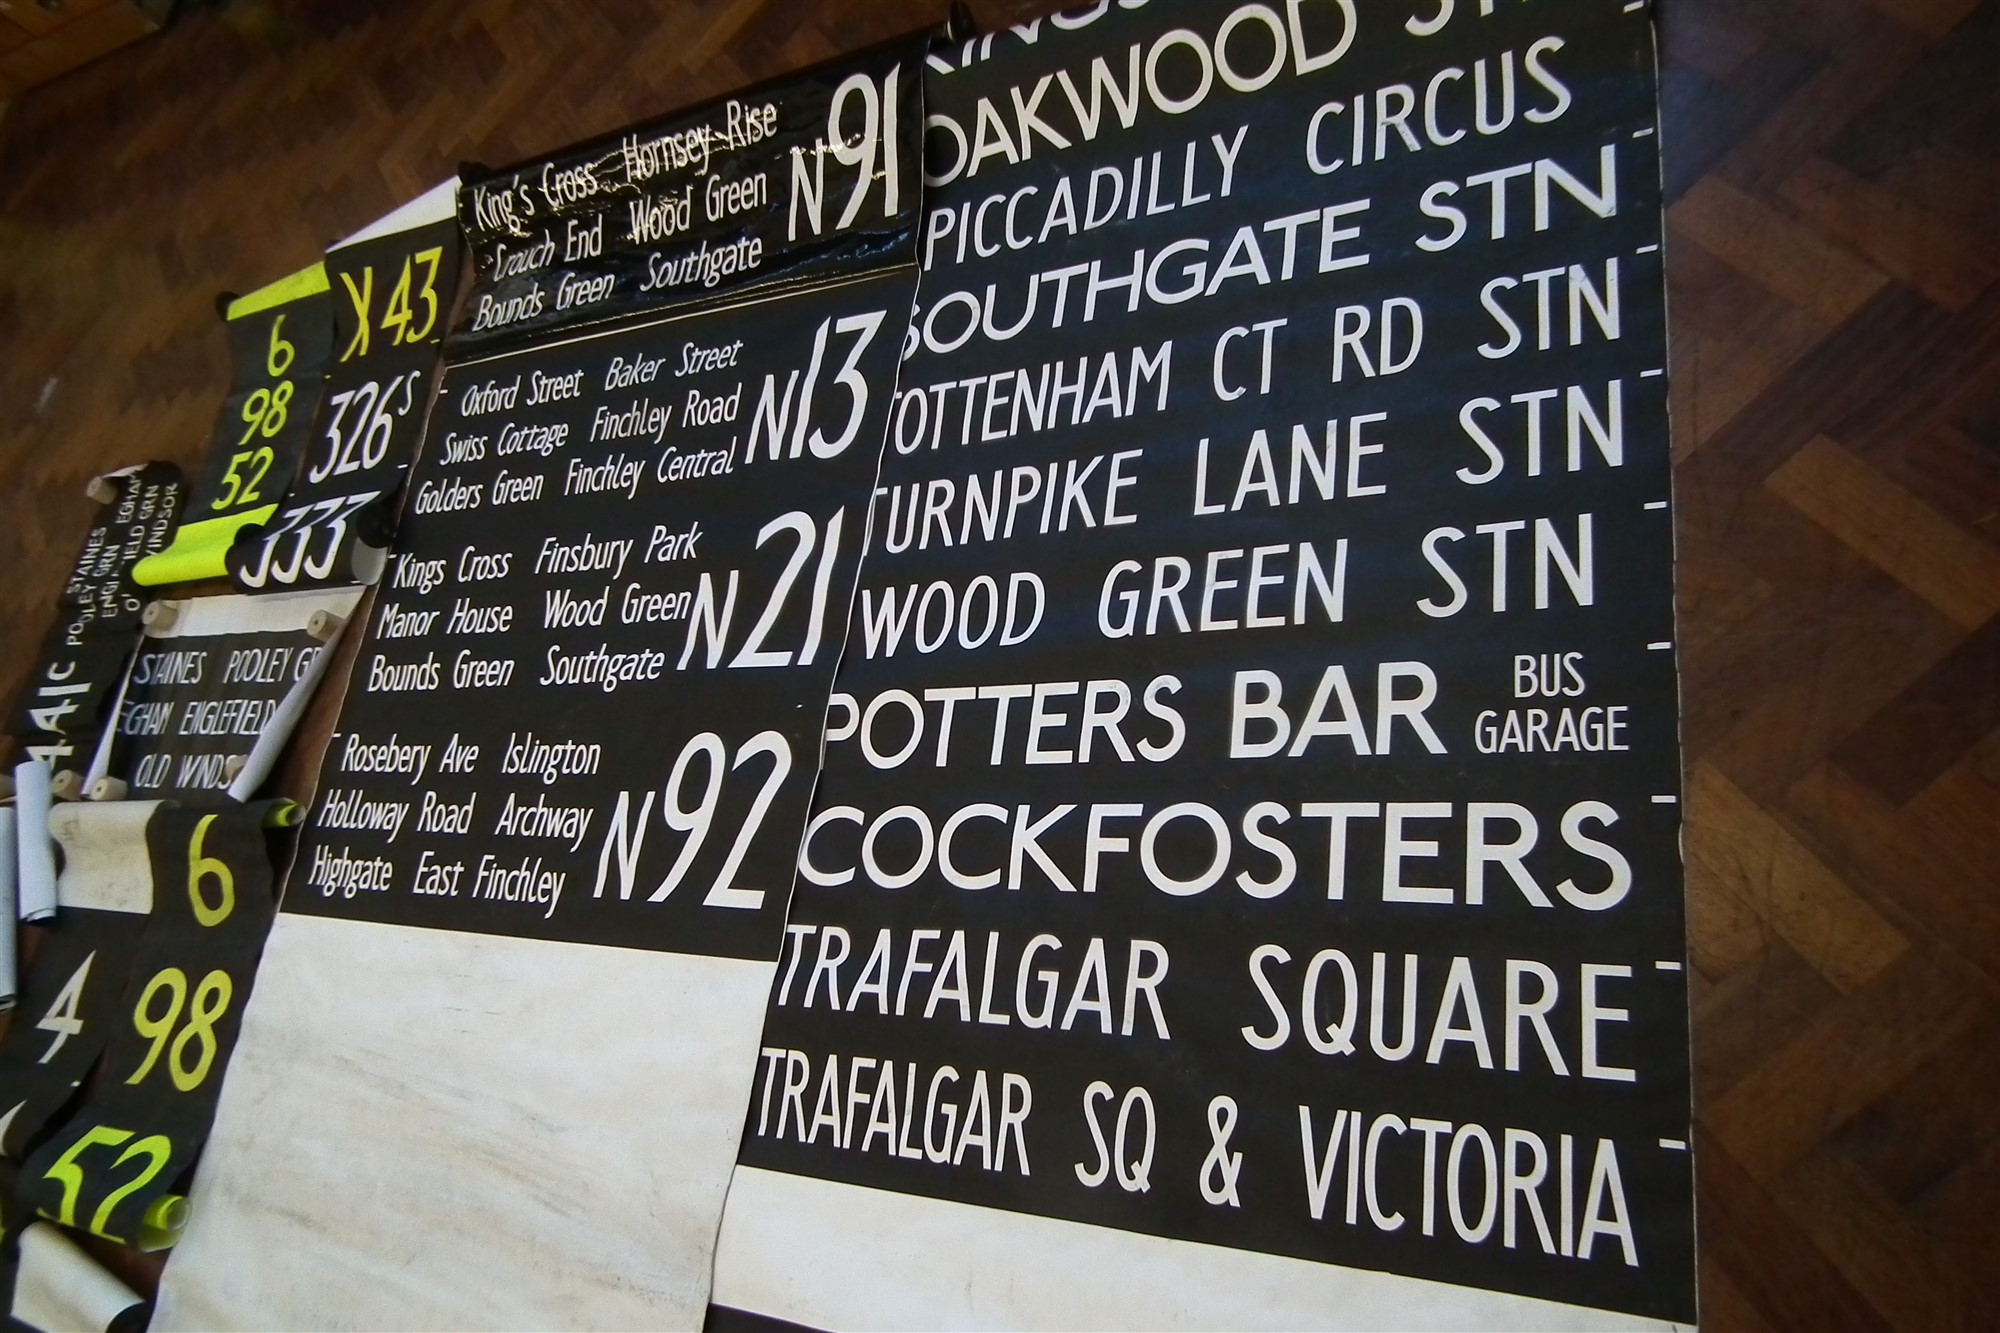 OAKWOOD
PICCADILLY CIRCUS
SOUTHGATE STN
TOTTENHAM CT RD STN
TURNPIKE LANE STN
WOOD GREEN STN
POTTERS BAR BUS GARAGE
COCKFOSTERS
TRAFALGAR SQUARE
TRAFALGAR SQ & VICTORIA
King's Cross Hornsey Rise
Crouch End Wood Green
Bounds Green Southgate
N91
Oxford Street Baker Street
Swiss Cottage Finchley Road
Golders Green Finchley Central
N13
Kings Cross Finsbury Park
Manor House Wood Green
Bounds Green Southgate
N21
Rosebery Ave Islington
Holloway Road Archway
Highgate East Finchley
N92
X43
326S
333
6
98
52
STAINES
POOLEY GRN
EGHAM
STAINES POOLEY
EGHAM ENGLEFIELD
OLD
6
98
52
4